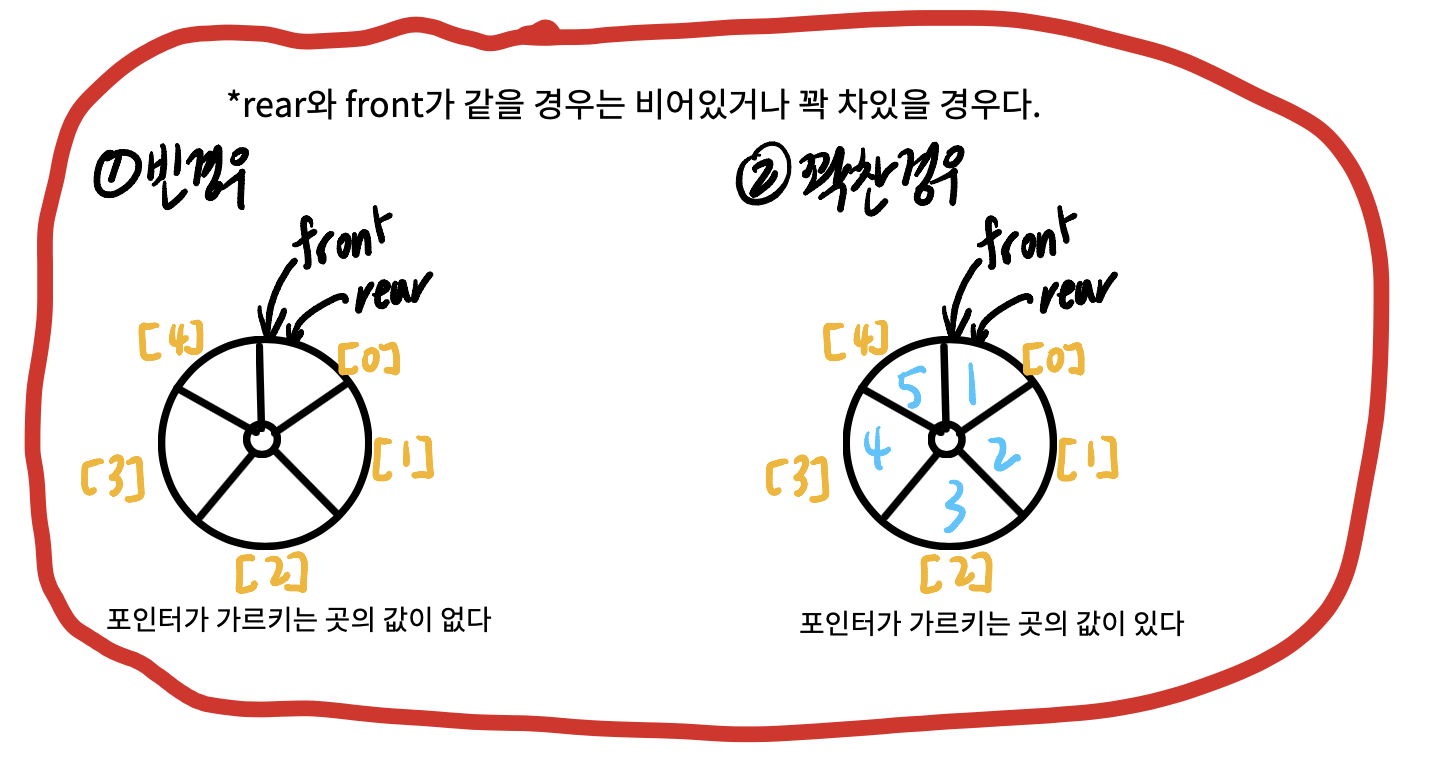 *rear와 front가 같을 경우는 비어있거나 꽉 차있을 경우다.
① 빈경우
② 꽉찬경우
front
rear
[4]
[0]
[3]
[1]
[2]
포인터가 가르키는 곳의 값이 없다
front
rear
[4]
[0]
5
1
4
2
[3]
[1]
3
[2]
포인터가 가르키는 곳의 값이 있다